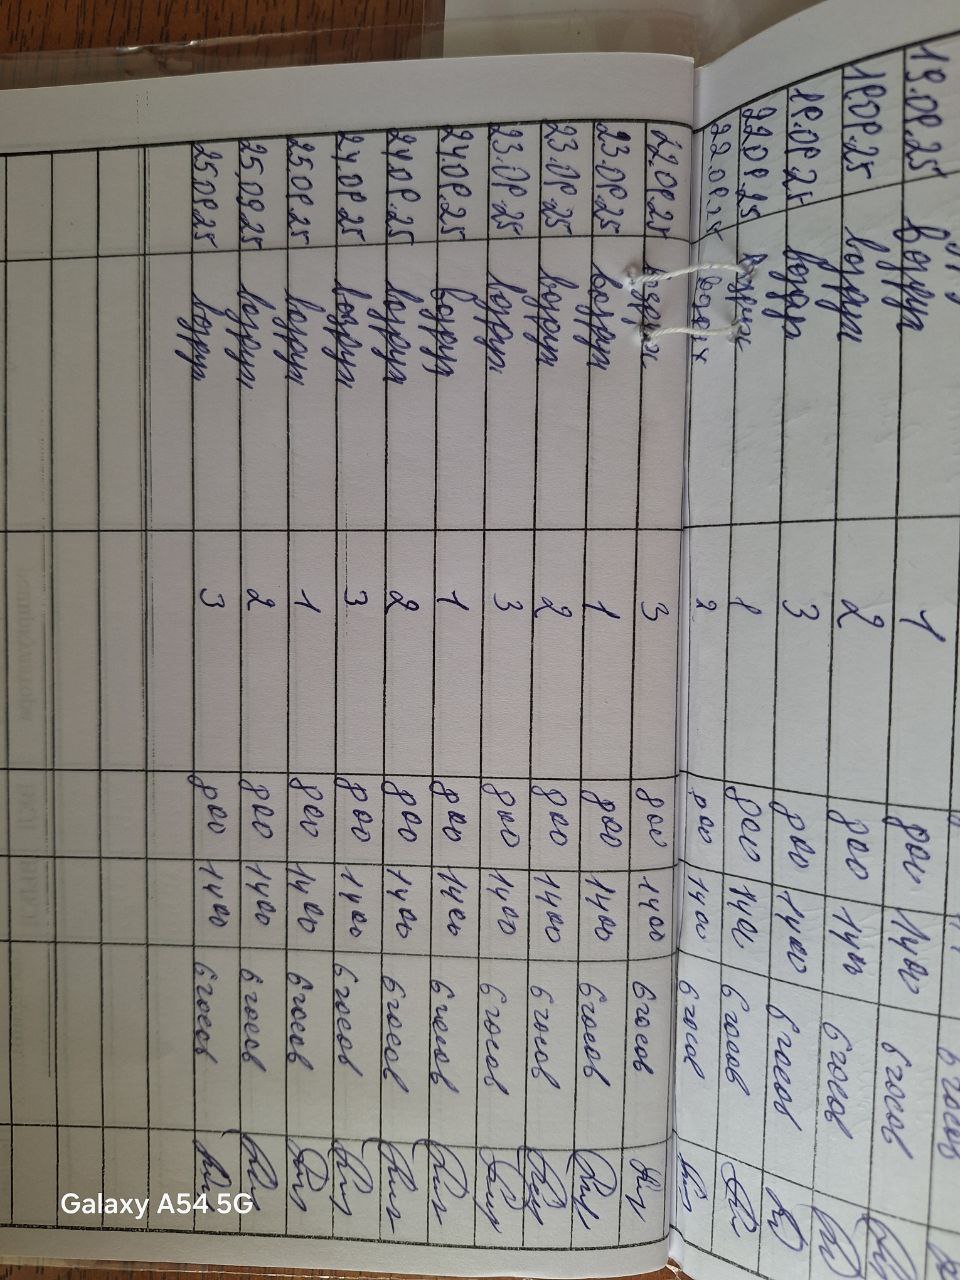 19.08.25 воздух 1 800 1400 6 часов
19.08.25 воздух 2 800 1400 6 часов
19.08.25 воздух 3 800 1400 6 часов
22.08.25 воздух 1 800 1400 6 часов
22.08.25 воздух 2 800 1400 6 часов
22.08.25 воздух 3 800 1400 6 часов
23.08.25 воздух 1 800 1400 6 часов
23.08.25 воздух 2 800 1400 6 часов
23.08.25 воздух 3 800 1400 6 часов
24.08.25 воздух 1 800 1400 6 часов
24.08.25 воздух 2 800 1400 6 часов
24.08.25 воздух 3 800 1400 6 часов
25.08.25 воздух 1 800 1400 6 часов
25.08.25 воздух 2 800 1400 6 часов
25.08.25 воздух 3 800 1400 6 часов
Galaxy A54 5G